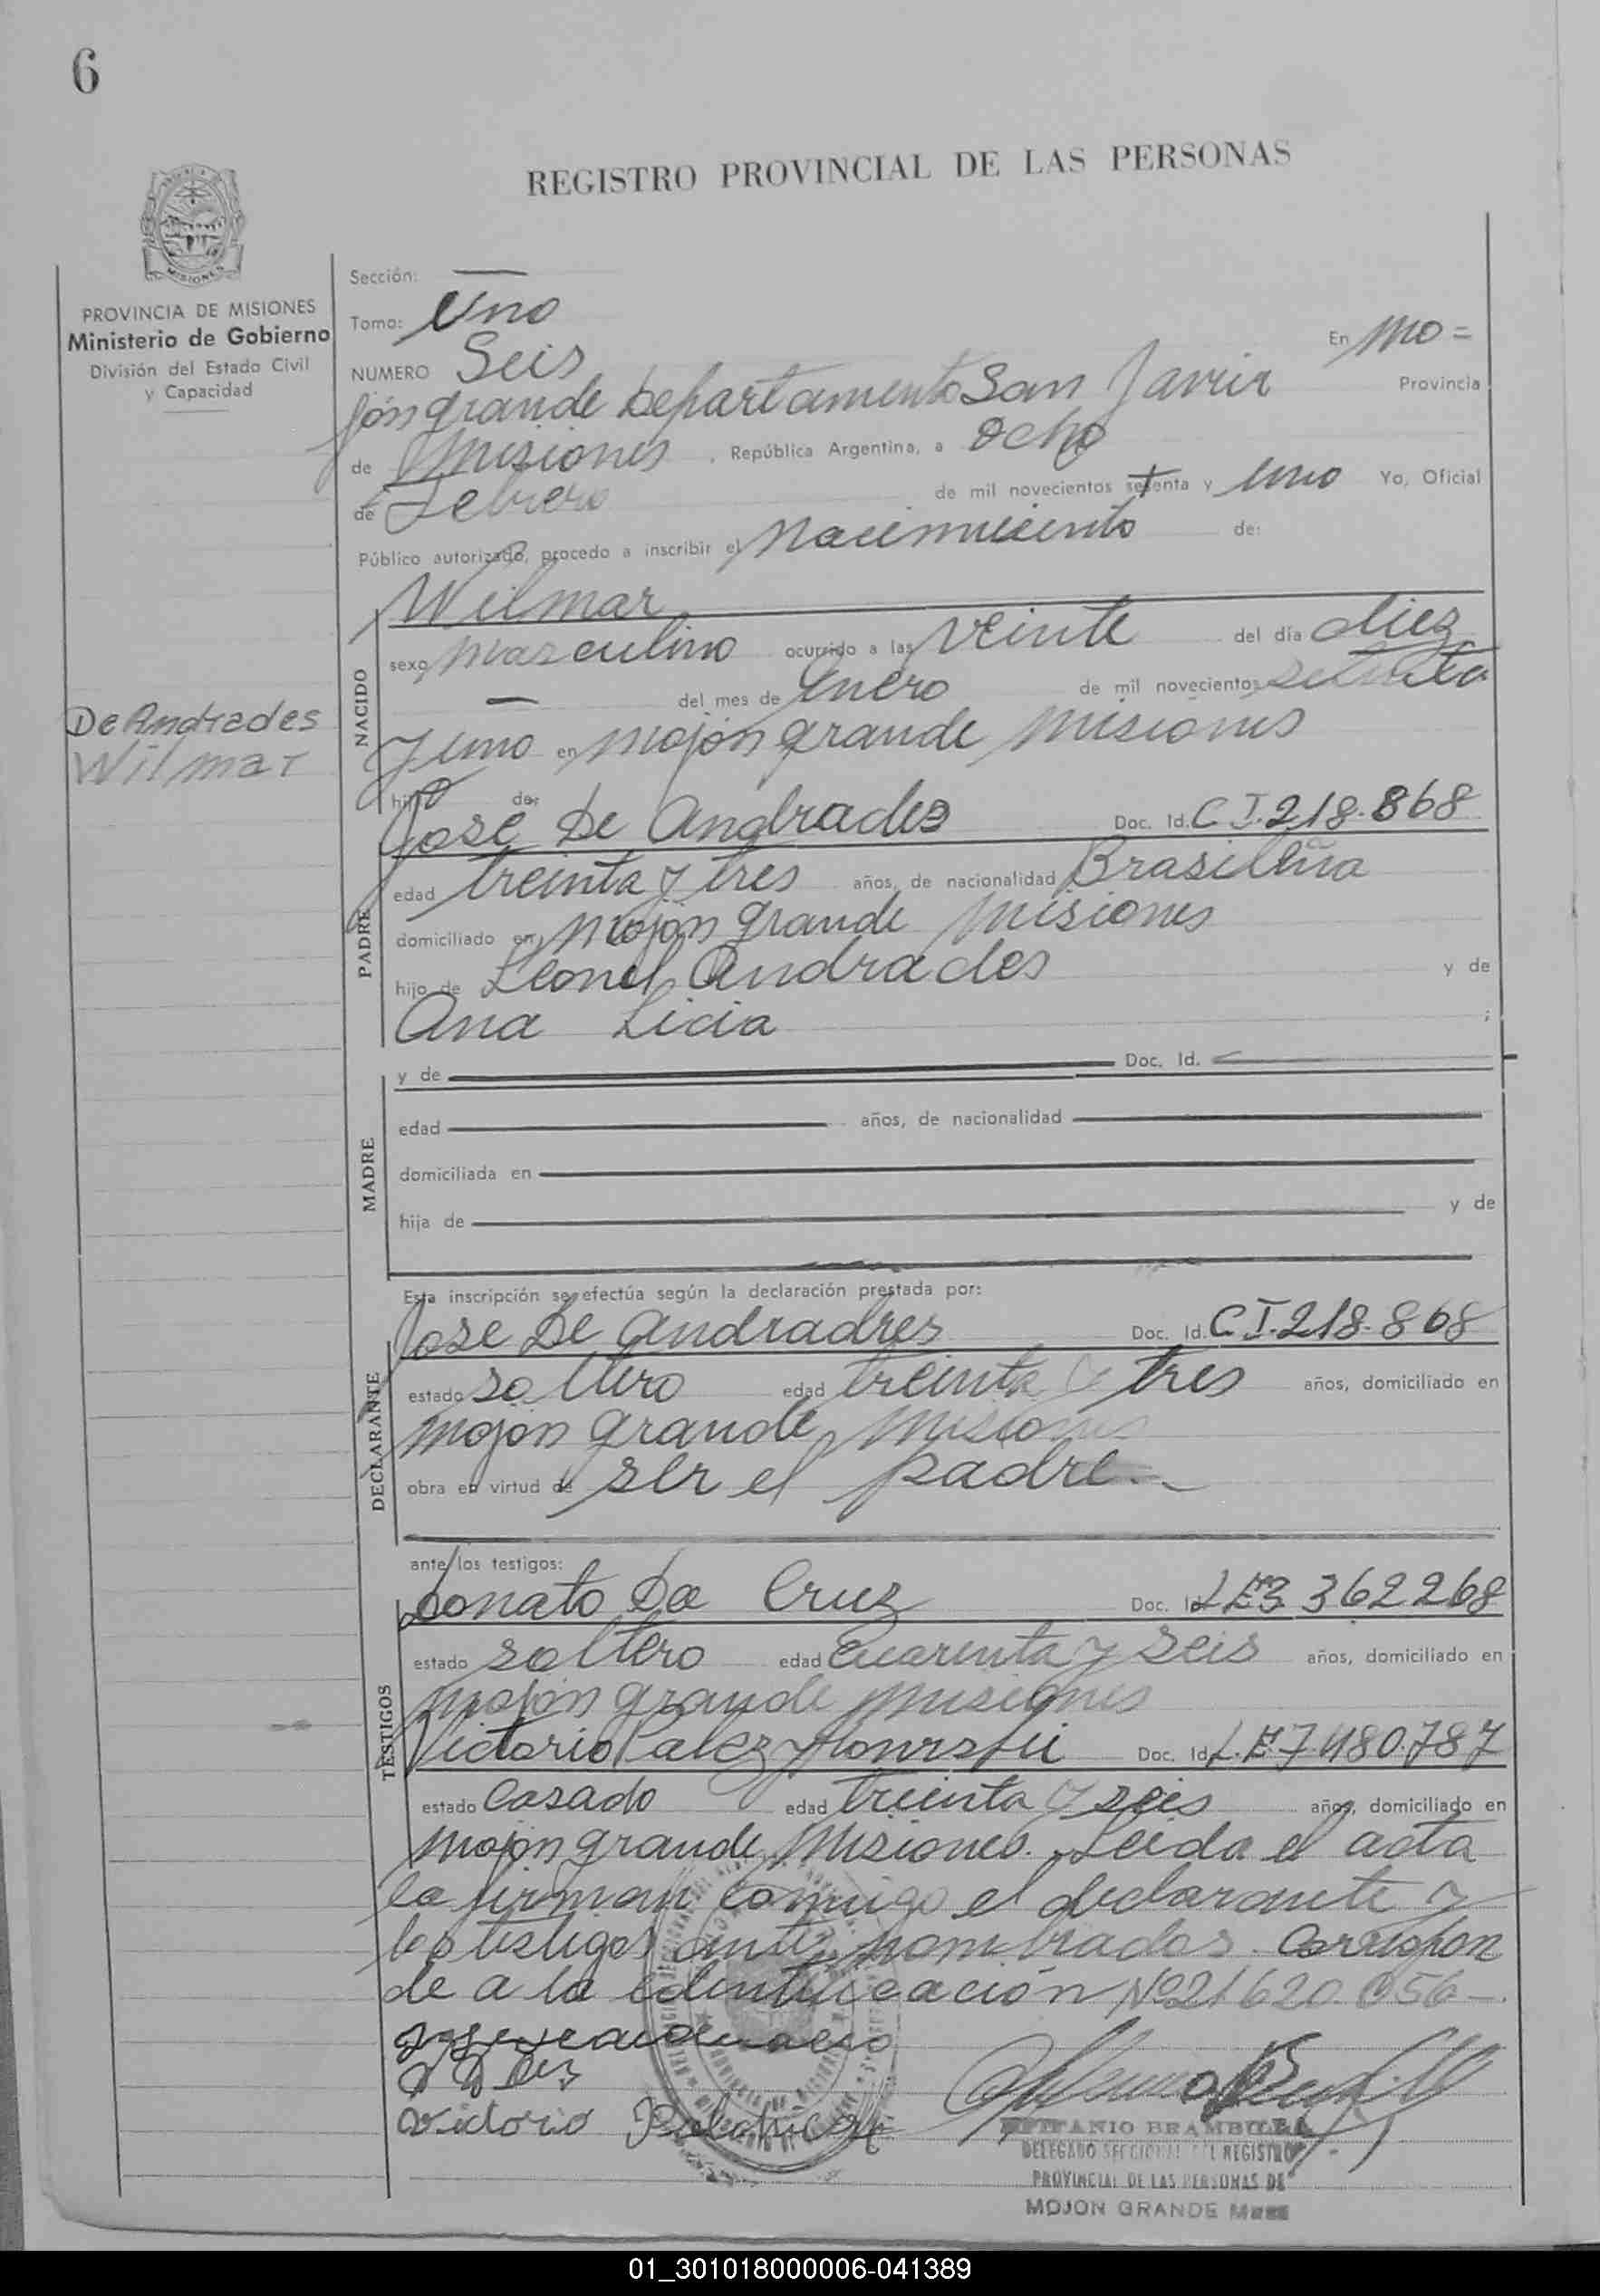 6
REGISTRO PROVINCIAL DE LAS PERSONAS
MISIONES
PROVINCIA DE MISIONES
Ministerio de Gobierno
División del Estado Civil
y Capacidad
De Andrades
Wilmar
Sección: —
Tomo: Uno
En Mo=
NUMERO Seis
jón grande Departamento San Javier Provincia
de Misiones , República Argentina, a ocho
de Febrero de mil novecientos setenta y uno Yo, Oficial
Público autorizado, procedo a inscribir el Nacimiento de:
NACIDO
Wilmar
sexo masculino ocurrido a las veinte del día diez
— del mes de Enero de mil novecientos setenta
y uno en Mojón grande Misiones
hijo de:
PADRE
José De Andrades Doc. Id. C.I. 218.868
edad treinta y tres años, de nacionalidad Brasileña
domiciliado en Mojón grande Misiones
hijo de Leonel Andrades y de
Ana Licia ;
MADRE
y de Doc. Id.
edad años, de nacionalidad
domiciliada en
hija de y de
Esta inscripción se efectúa según la declaración prestada por:
DECLARANTE
Jose De Andradres Doc. Id. C.I. 218.868
estado soltero edad treinta y tres años, domiciliado en
Mojón grande Misiones
obra en virtud de ser el padre.
ante los testigos:
TESTIGOS
Donato Da Cruz Doc. Id. L.E. 3.362268
estado soltero edad Cuarenta y seis años, domiciliado en
Mojón grande Misiones
Victorio Doc. Id. L.E. 7.480.787
estado Casado edad treinta y seis años, domiciliado en
Mojón grande Misiones. Leida el acta
la firman conmigo el declarante y
los testigos antes nombrados. Correspon
de a la edentificación Nº 21620.056—.
Victorio
EPIFANIO BRAMBILLA
DELEGADO SECCIONAL DEL REGISTRO
PROVINCIAL DE LAS PERSONAS DE
MOJON GRANDE
01_301018000006-041389